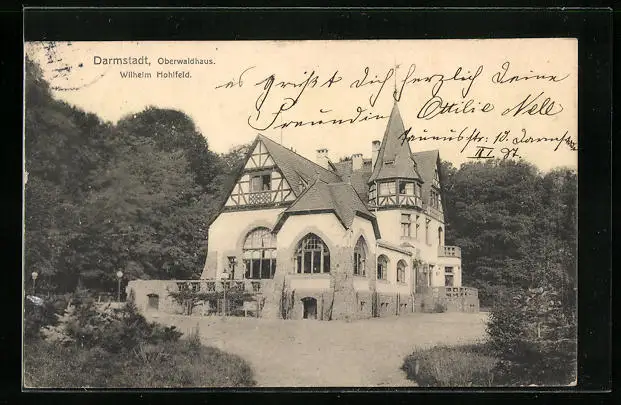 Darmstadt, Oberwaldhaus.
Wilhelm Hohlfeld.
es grüßt dich herzlich Deine
Freundin Ottilie Nell
Taunusstr: 10. Darmst.